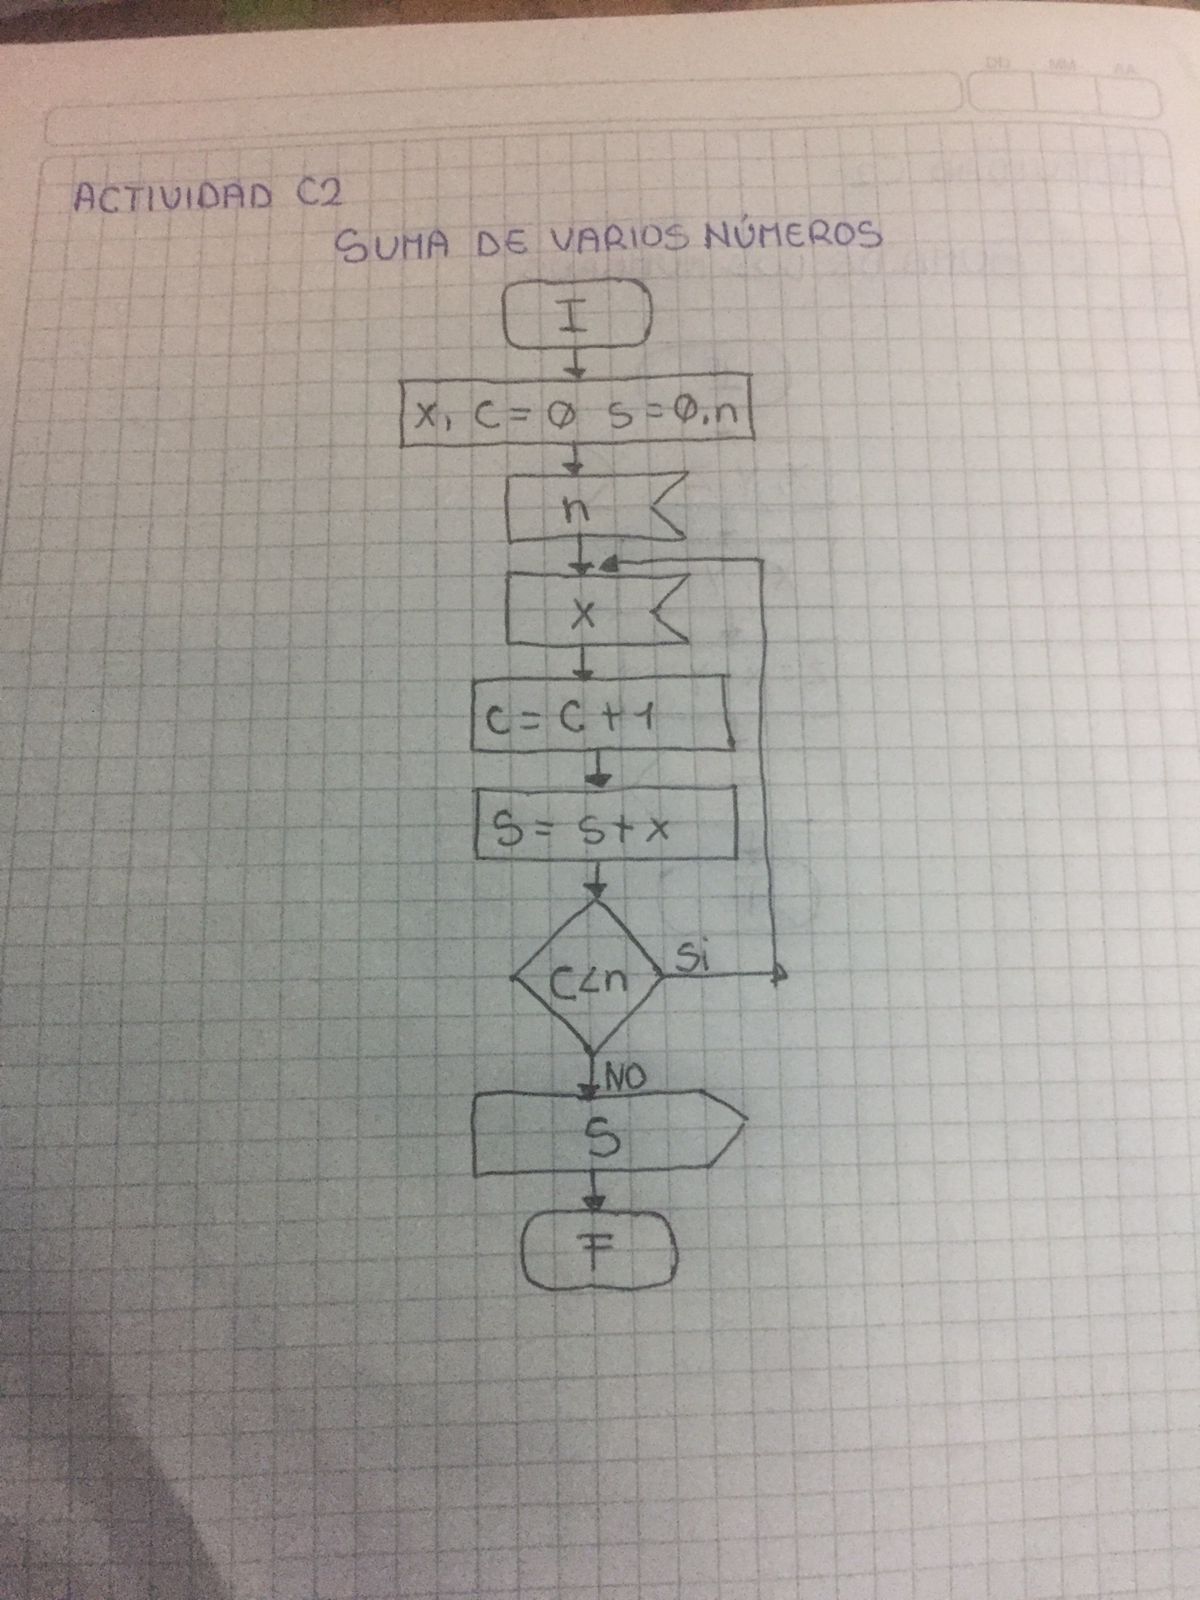 ACTIVIDAD C2
SUMA DE VARIOS NÚMEROS
I
x, C = Ø S = Ø, n
n
x
C = C + 1
S = S + x
C < n
Si
NO
S
F